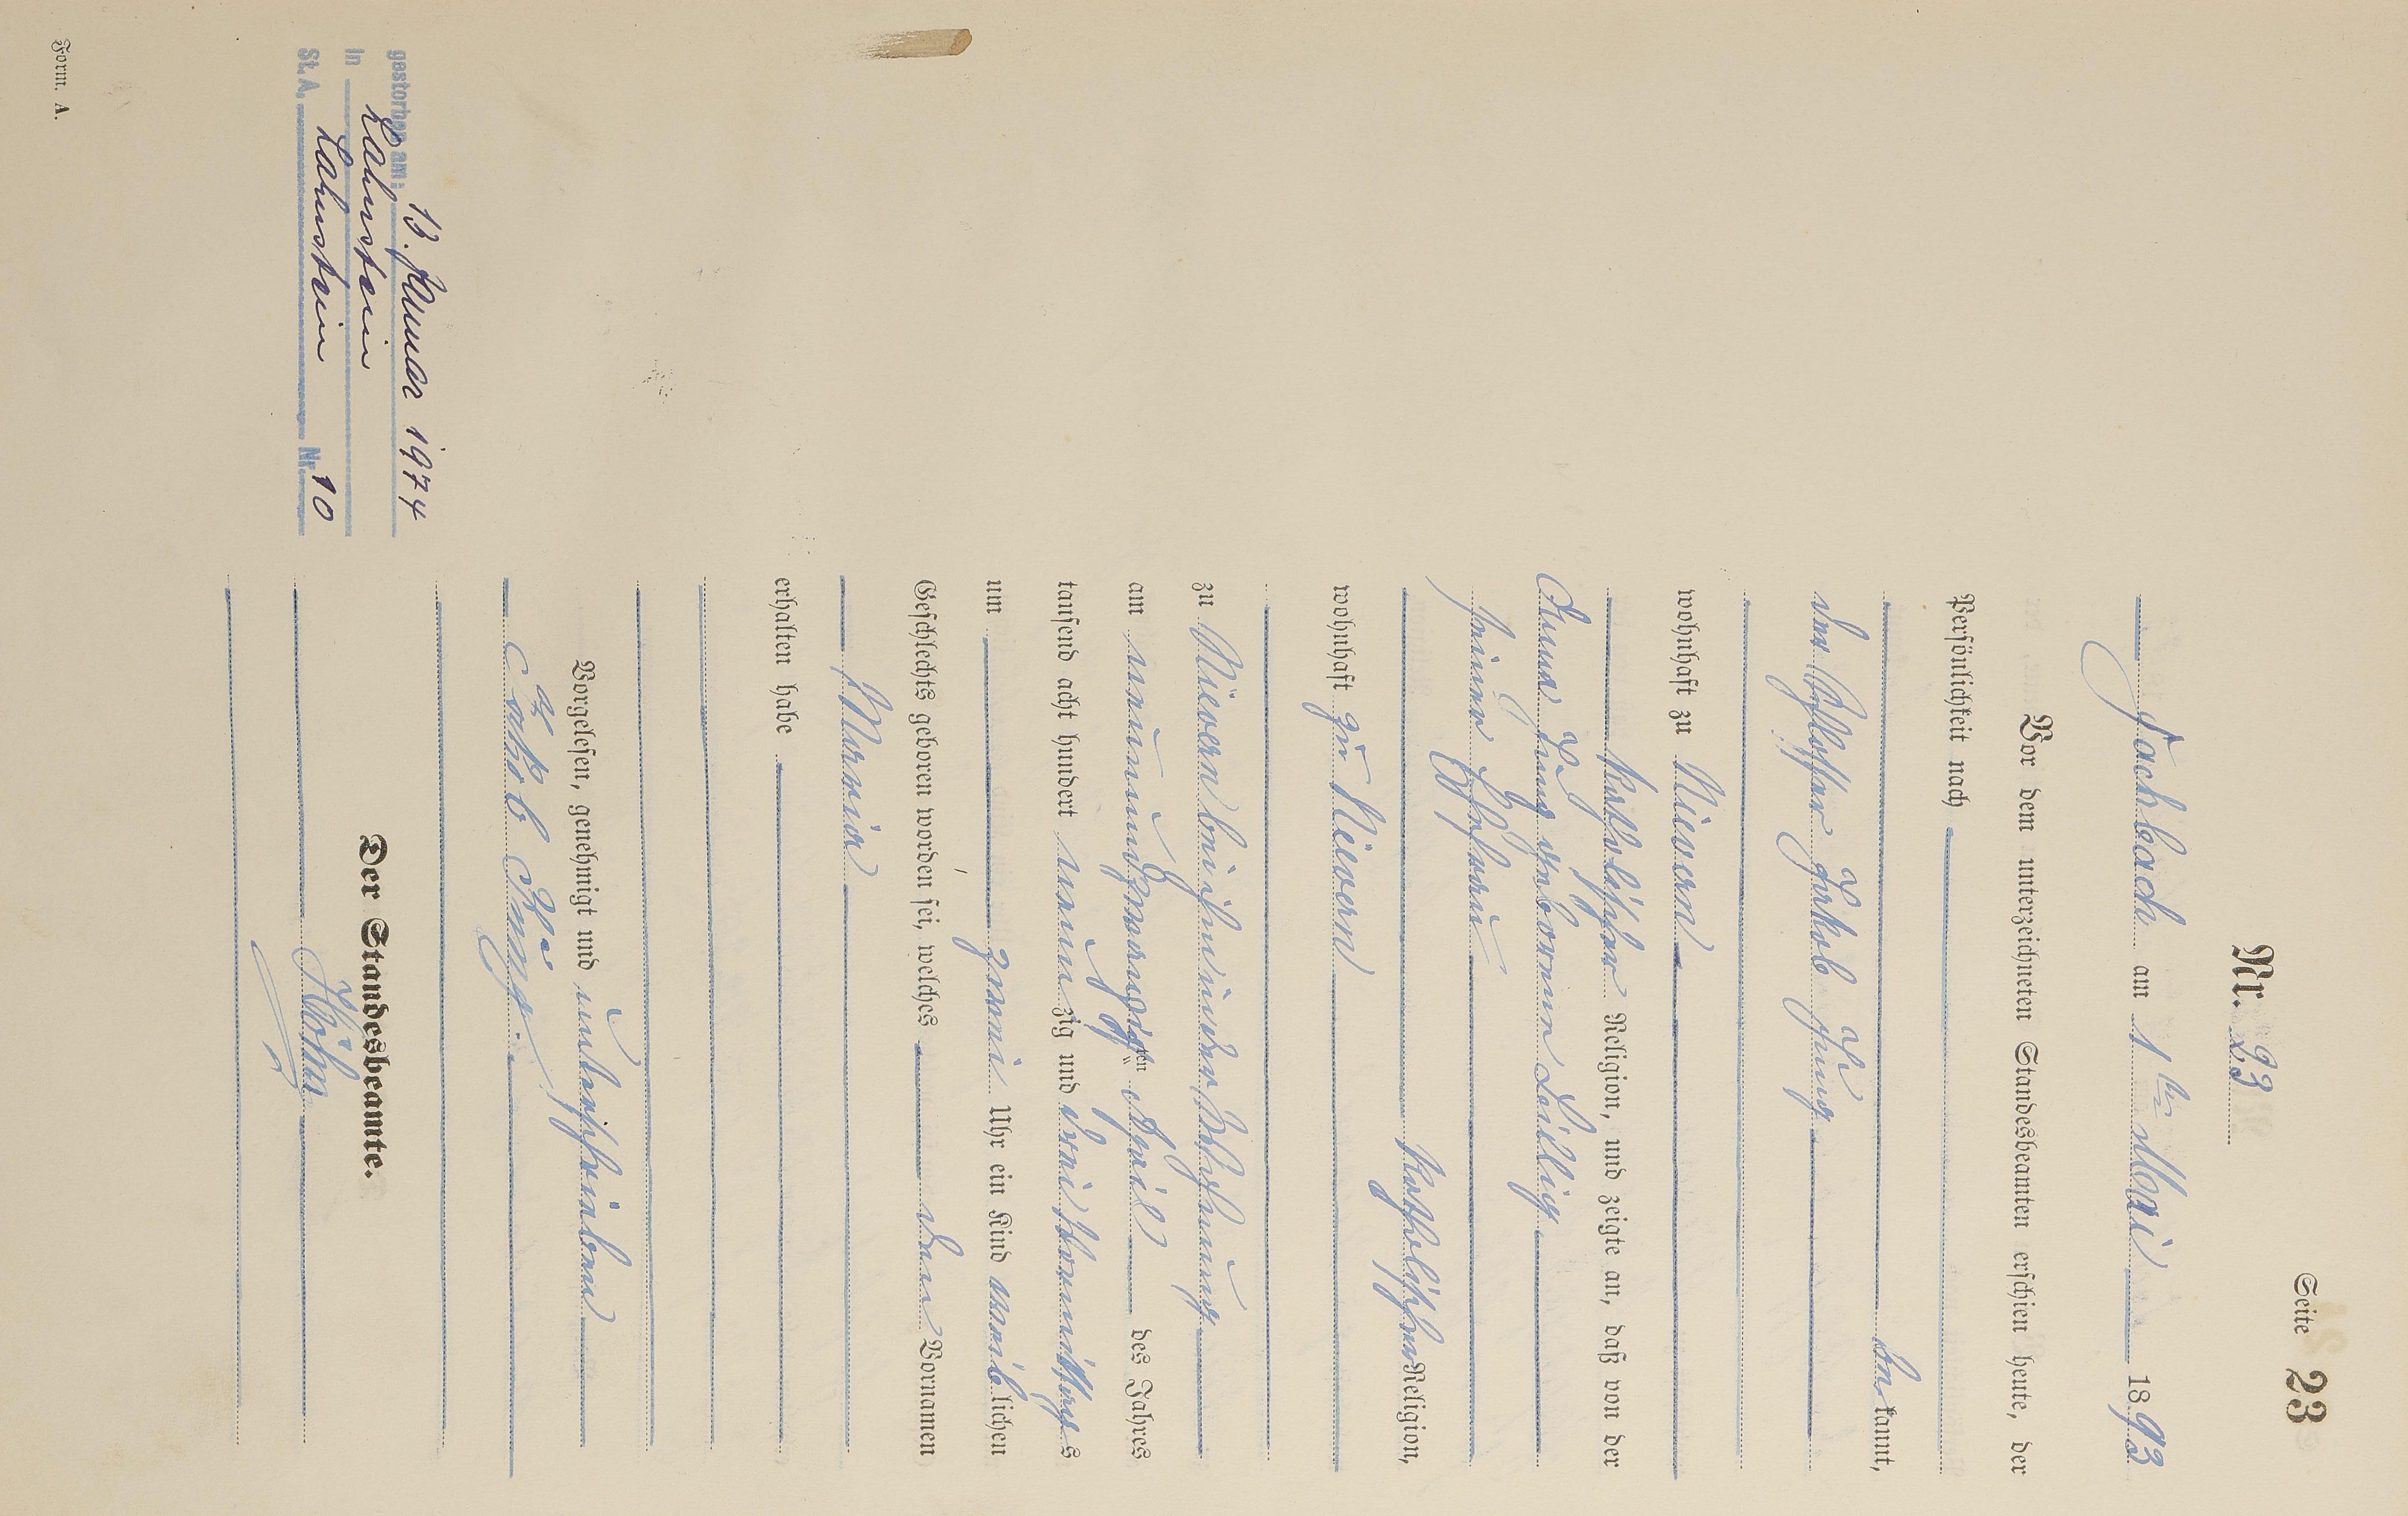 Seite 23
Nr. 23
Fachbach am 1ten Mai 1893
Vor dem unterzeichneten Standesbeamten erschien heute, der
Persönlichkeit nach
bekannt,
der Schlosser Jakob Jung
wohnhaft zu Nievern
katholischer Religion, und zeigte an, daß von der
Anna Jung geborenen Lillig
seiner Ehefrau
katholischer Religion,
wohnhaft zu Nievern
zu Nievern bei ihm in der Wohnung
am neunundzwanzigsten April des Jahres
tausend acht hundert neunzig und drei Vormittags
um zwei Uhr ein Kind weiblichen
Geschlechts geboren worden sei, welches den Vornamen
Maria
erhalten habe
Vorgelesen, genehmigt und unterschrieben
Jakob Jung.
Der Standesbeamte.
Höhn
gestorben am: 13. Januar 1974
in Lahnstein
St. A. Lahnstein Nr. 10
Form. A.